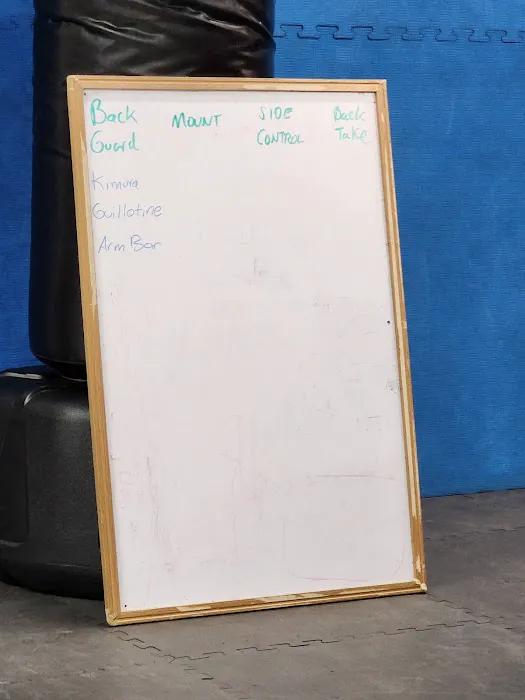 Back Guard
MOUNT
SIDE CONTROL
Back Take
Kimura
Guillotine
Arm Bar